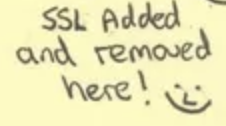 SSL Added
and removed
here! :)